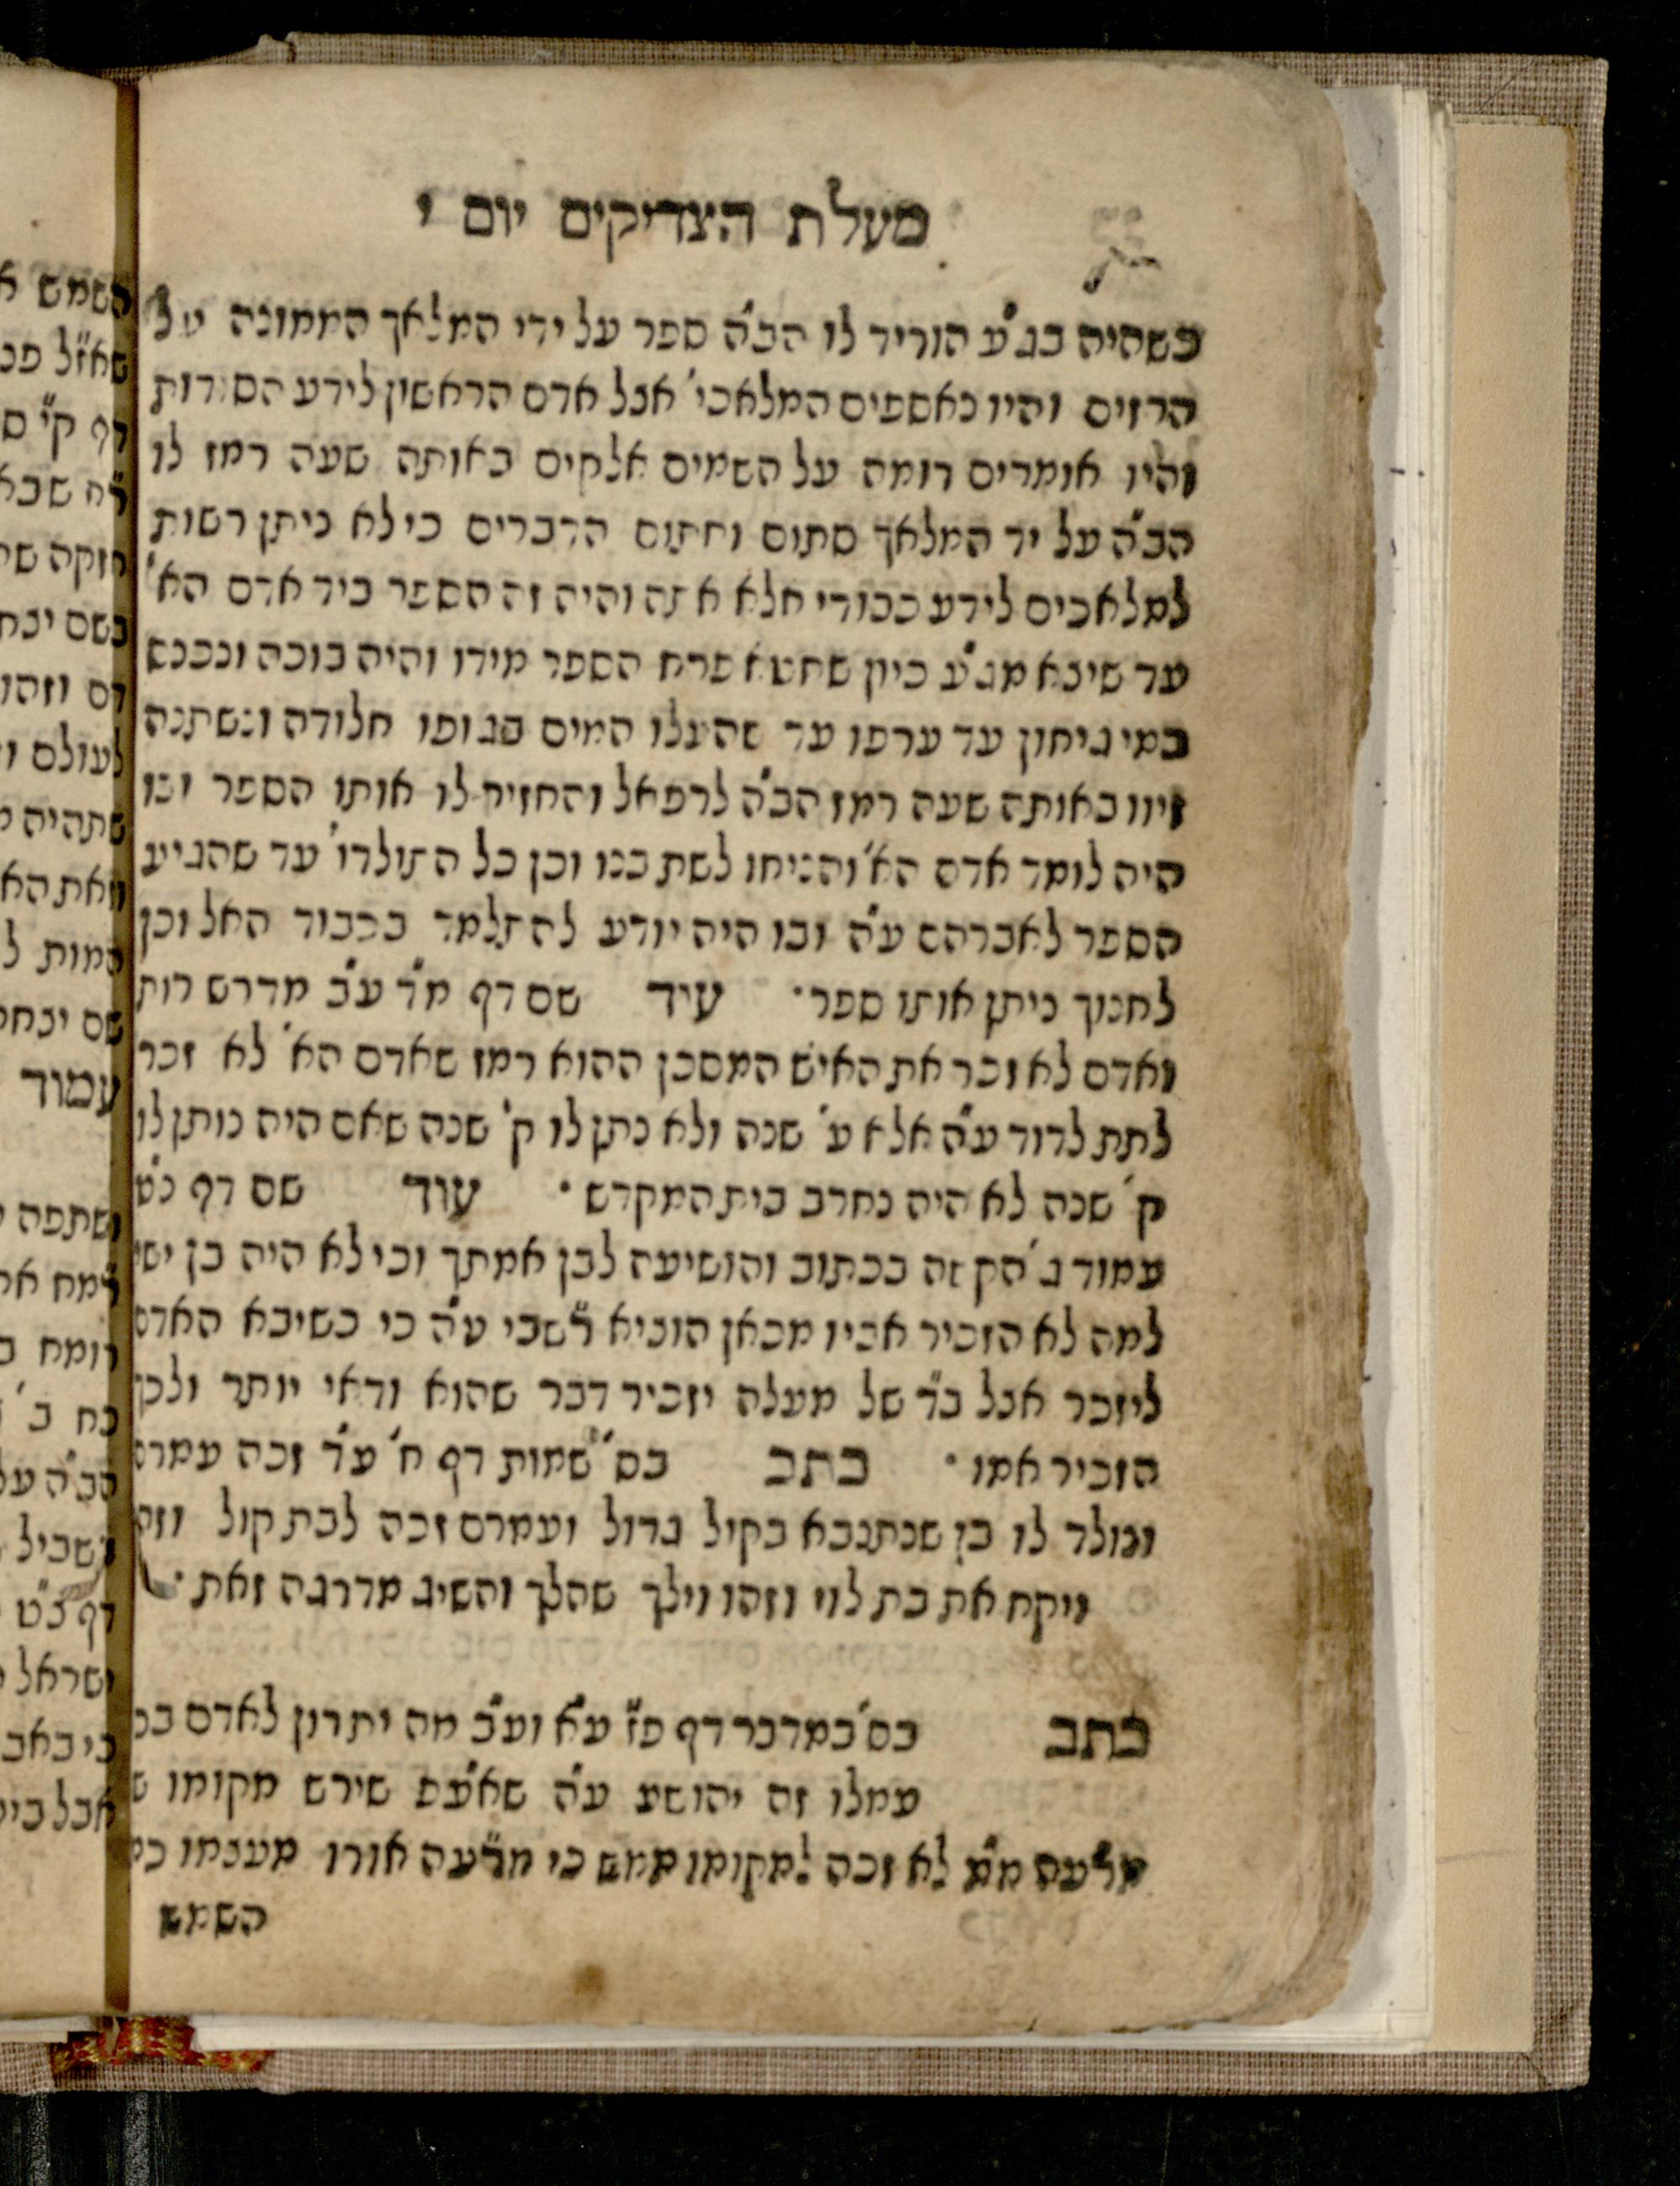 מעלת הצדיקים יום י
כשהיה בג"ע הוריד לו הב"ה ספר על ידי המלאך הממונה על
הרזים והיו נאספים המלאכי' אצל אדם הראשון לידע הסודות
והיו אומרים רומה על השמים אלהים באותה שעה רמז לו
הב"ה על יד המלאך סתום וחתום הדברים כי לא ניתן רשות
למלאכים לידע כבודי אלא אתה והיה זה הספר ביד אדם הא'
עד שיצא מג"ע כיון שחטא פרח הספר מידו והיה בוכה ונכנס
במי גיחון עד ערפו עד שהעלו המים בגופו חלודה ונשתנה
זיוו באותה שעה רמז הב"ה לרפאל והחזיר לו אותו הספר ובו
היה לומד אדם הא' והניחו לשת בנו וכן כל התולדו' עד שהגיע
הספר לאברהם ע"ה ובו היה יודע להתלמד בכבוד האל וכן
לחנוך ניתן אותו ספר· עוד שם דף מ"ד ע"ב מדרש רות
ואדם לא זכר את האיש המסכן ההוא רמז שאדם הא' לא זכר
לתת לדוד ע"ה אלא ע' שנה ולא נתן לו ק' שנה שאם היה נותן לו
ק' שנה לא היה נחרב בית המקדש· עוד שם דף נ"ט
עמוד ג' הק' זה בכתוב והושיעה לבן אמתך וכי לא היה בן ישי
למה לא הזכיר אביו מכאן הוציא רשב"י ע"ה כי כשיבא האדם
ליזכר אצל ב"ד של מעלה יזכיר דבר שהוא ודאי יותר ולכן
הזכיר אמו· כתב בס' שמות דף ח' ע"ד זכה עמרם
ונולד לו בן שנתנבא בקול גדול ועמרם זכה לבת קול וזה
ויקח את בת לוי וזהו וילך שהלך והשיג מדרגה זאת·
כתב בס' במדבר דף פ"ז ע"א וע"ב מה יתרון לאדם בכ
עמלו זה יהושע ע"ה שאע"פ שירש מקומו ש
מרע"ה מ"מ לא זכה למקומו ממש כי מרע"ה אורו מעצמו כמ
השמש